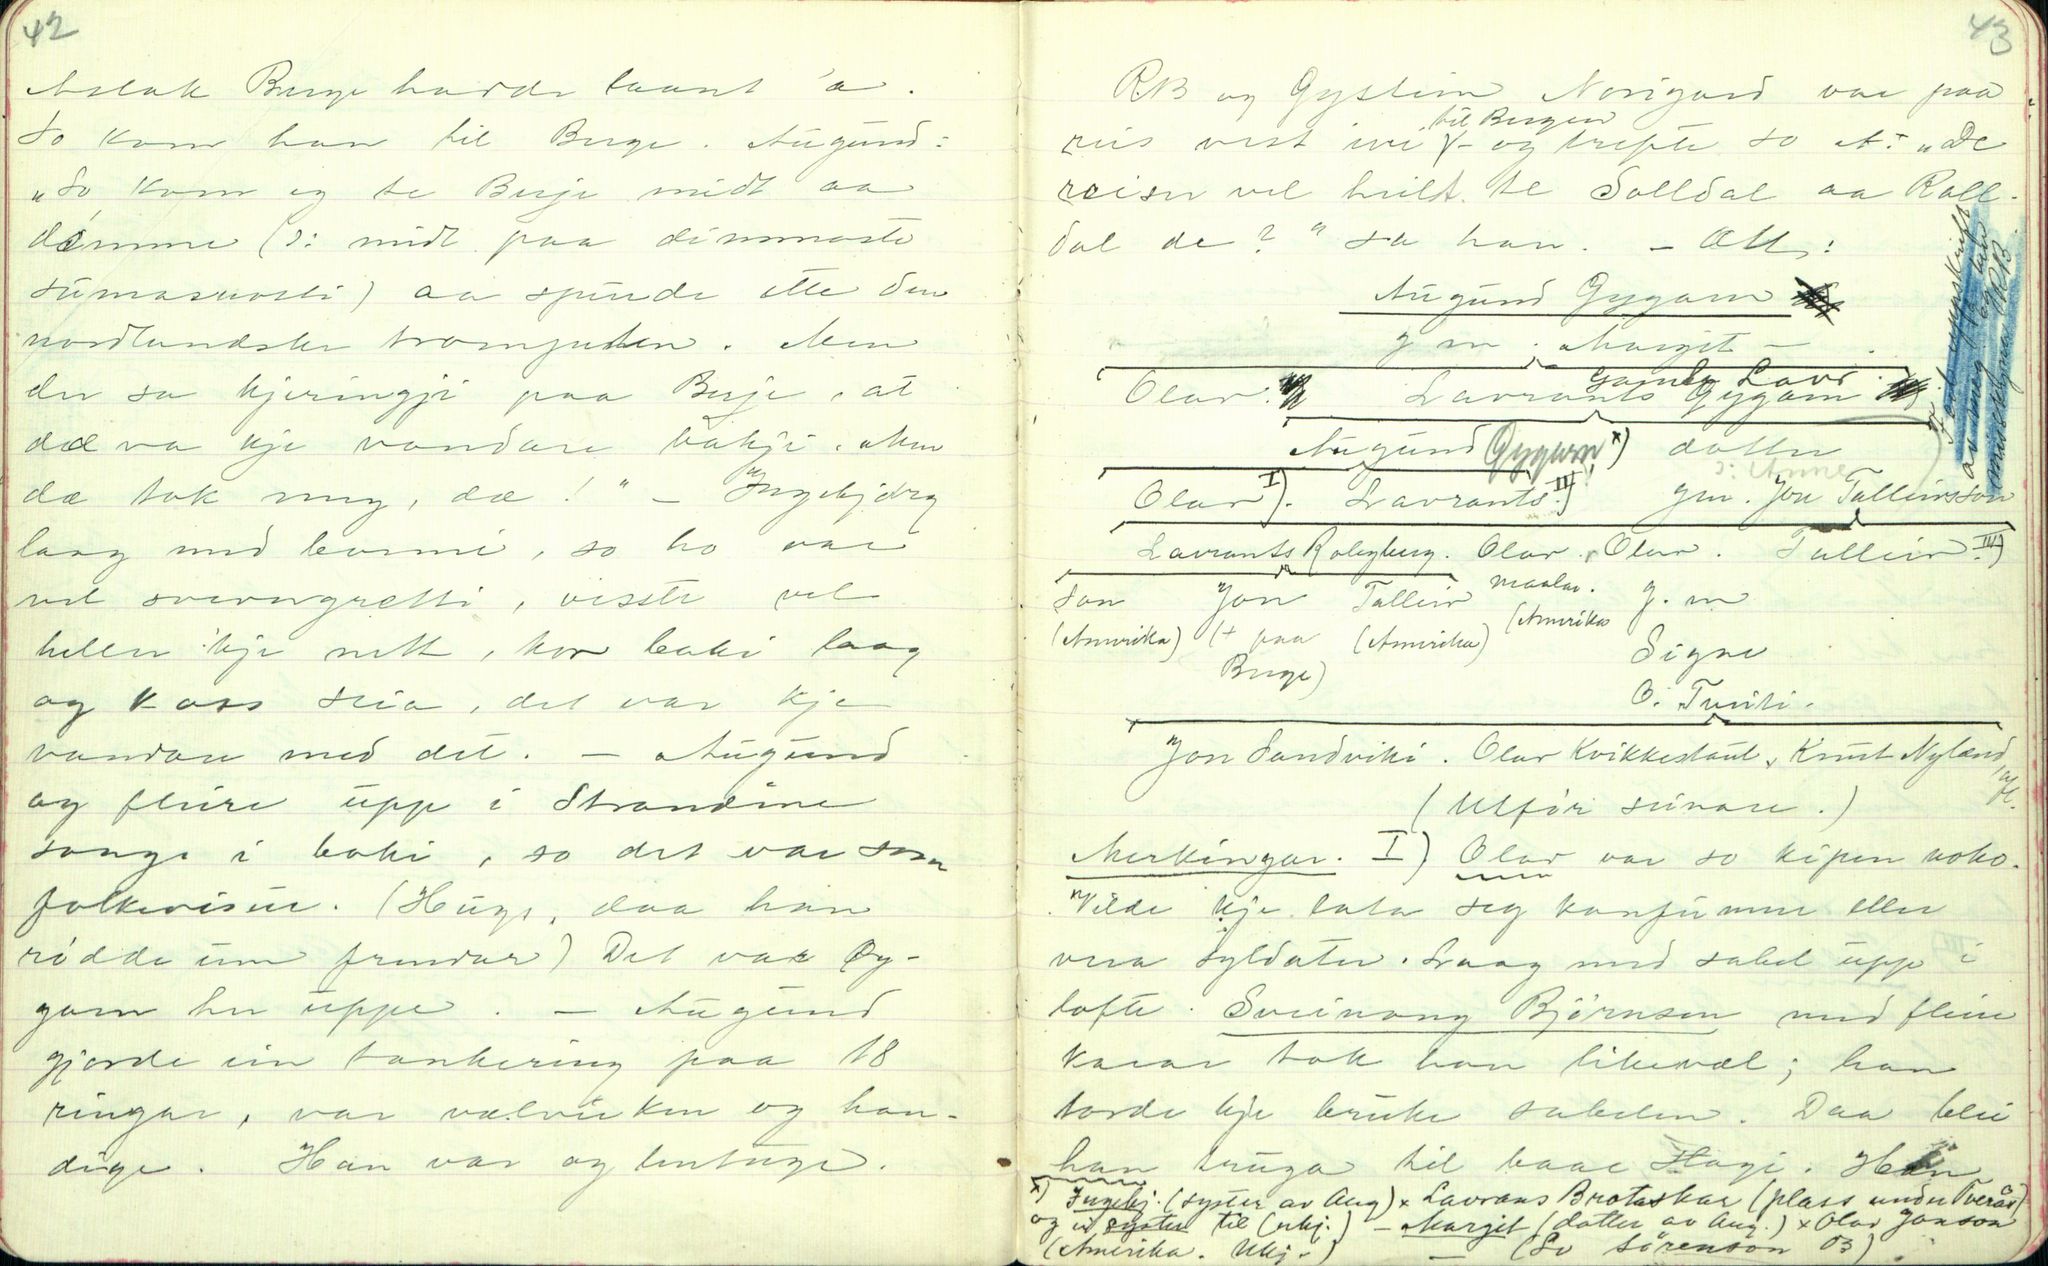 42
Aslak Berge hadde laant 'a.
So kom han til Berge. Augund:
"So kom eg te Berje midt aa
dimme (ɔ: midt paa dimmaste
sumarnosti) aa spurde ette den
nordlandske trompeten. Men
der sa kjeringji paa Berje, at
dæ va kje vandare bakji. Men
dæ tok meg, dæ!" — Ingebjörg
laag med borni, so ho var
vel
heller 'kje nett, kor boki laag
og koss seia, det var kje
vandare med det. — Augund
og fleire uppe i Strandine
songe i boki, so det var som
folkevisur. (Hugs, daa han
rödde um frendar) Det var Gy-
garn her uppe. — Augund
gjorde ein tankering paa 18
ringar, var vælvirken og han-
dige. Han var og lentuge.
43
RB og Gystein Norigard var paa
reis vest ivi til Bergen - og trefte so A: "De
reiser vel kvilt te Solldal aa Roll-
dal de?" sa han. — Ætt:
Augund Gygarn
g m. Margit —
Olav. Lavrants Gygarn gamle Lavr.
Augund Gygarn x) dotter
ɔ: Anne
Olav I). Lavrants III) gm. Jon Talleivsson
Lavrants Rolegberg. Olav. Olav. Talleiv IIII)
Jon Talleiv maalar. g. m
(Amerika) (+ paa (Amerika) (Amerika
Berge) Signe
O. Tveiti.
Jon Sandviki. Olav Kvikkestaul, Knut Nyland
(Utför seinare.)
Merkingar. I) Olav var so kipen noko.
Vilde kje lata seg konfirmere eller
vera syldater. Laag med sabel uppe i
lofte. Sveinung Björnsen med fleire
karar tok han likevæl; han
torde kje bruke sabelen. Daa blei
han truga til taae Hagi. Han
x) Ingebj. (syster av Aug) x Lavrans Brotaskar (plass under Tveraas)
og ei syster til (ukj.) — Margit (dotter av Aug.) x Olav Jonson
(Amerika. Ukj.) — (So Sörenson OB)